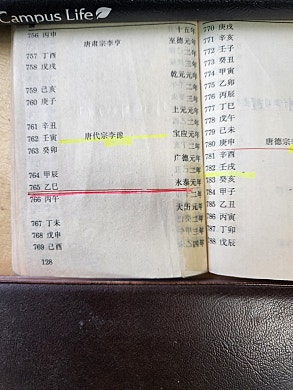 Campus Life
756 丙申 十五年
唐肃宗李亨 至德元年
757 丁酉 二年
758 戊戌
乾元元年
759 己亥 二年
760 庚子
上元元年
761 辛丑 二年
762 壬寅 唐代宗李豫 宝应元年
763 癸卯 二年
广德元年
764 甲辰 二年
765 乙巳 永泰元年
766 丙午 二年
大历元年
767 丁未 二年
768 戊申 三年
769 己酉 四年
128
770 庚戌
771 辛亥
772 壬子
773 癸丑
774 甲寅
775 乙卯
776 丙辰
777 丁巳
778 戊午
779 己未
780 庚申 唐德宗
781 辛酉
782 壬戌
783 癸亥
784 甲子
785 乙丑
786 丙寅
787 丁卯
788 戊辰